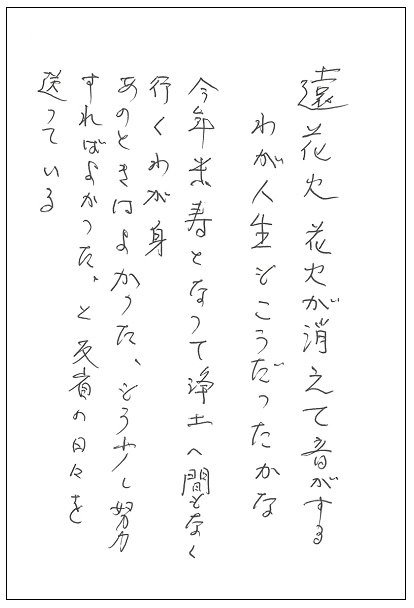 遠花火 花火が消えて音がする
わが人生もこうだったかな
今年米寿となって浄土へ間もなく
行くわが身
あのときはよかった、もう少し努力
すればよかった、と反省の日々を
送っている